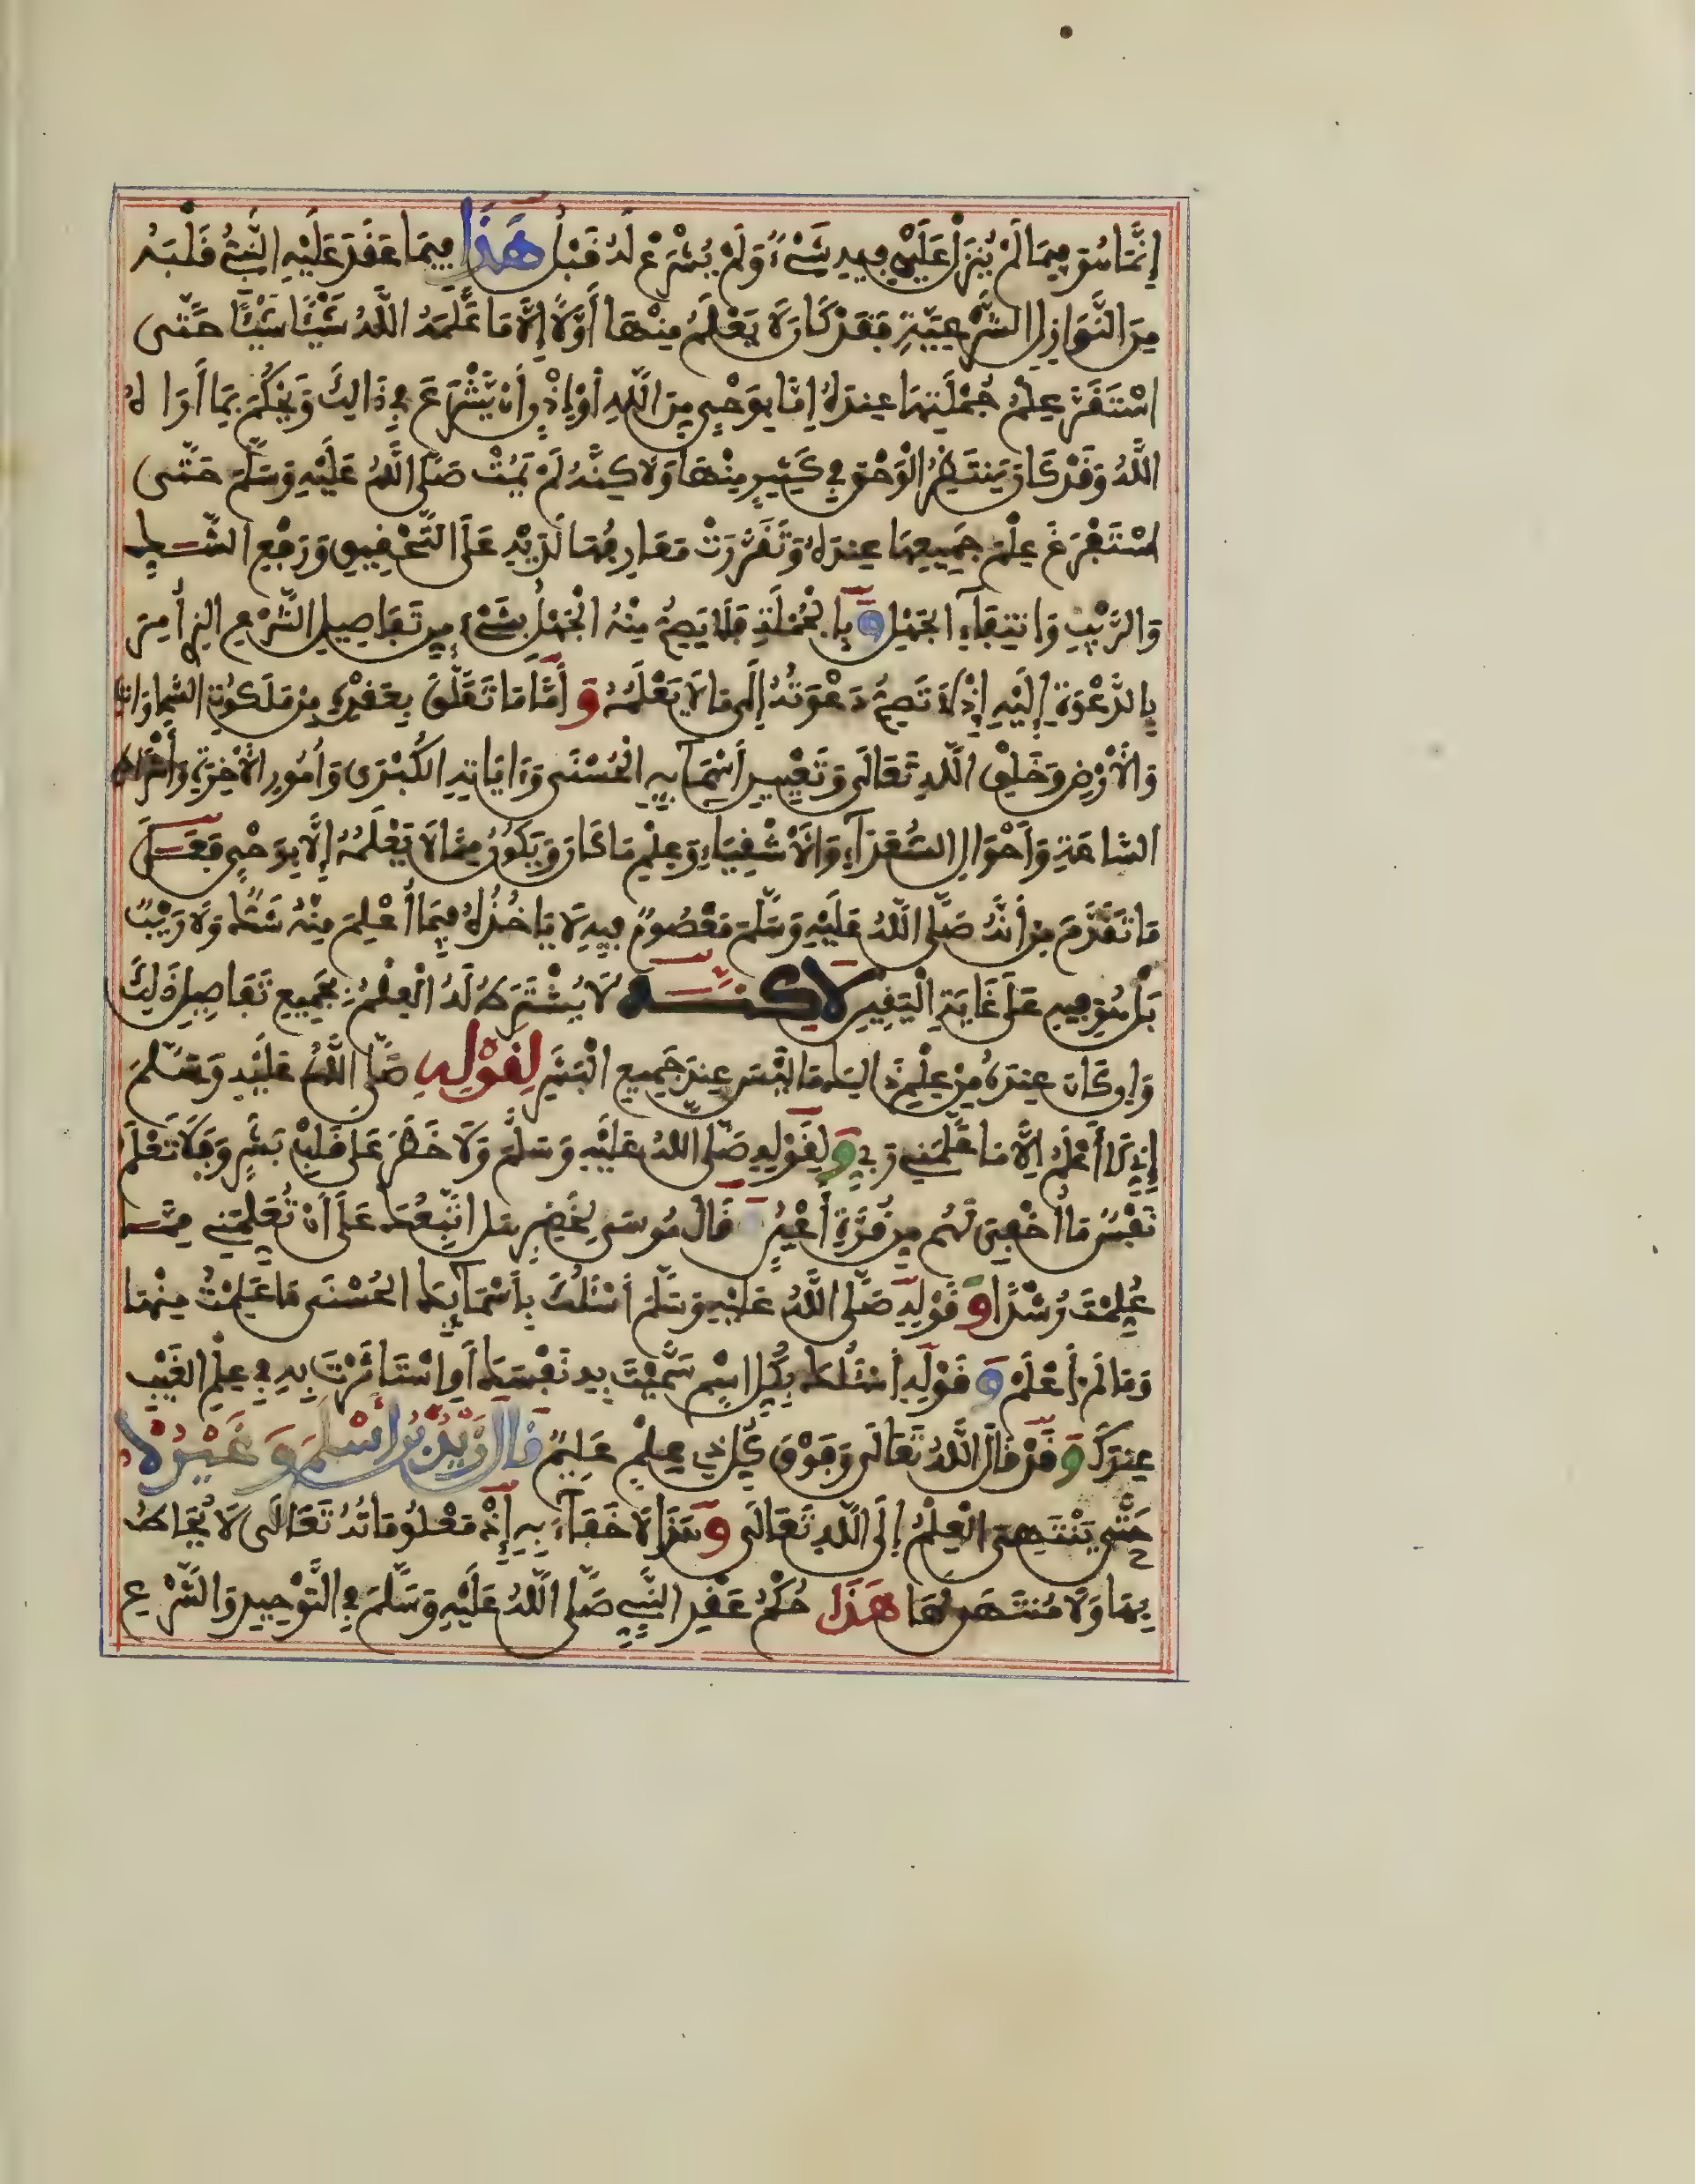 إِنَّمَا هُوَ فِيمَا لَمْ يُنْزَلْ عَلَيْهِ فِيهِ شَيْءٌ وَلَمْ يُشْرَعْ لَهُ قَبْلُ هَذَا فِيمَا عَقَدَ عَلَيْهِ النَّبِيُّ قَلْبَهُ
مِنَ النَّوَازِلِ الشَّرْعِيَّةِ فَقَدْ كَانَ لَا يَعْلَمُ مِنْهَا أَوَّلًا إِلَّا مَا عَلَّمَهُ اللَّهُ شَيْئًا شَيْئًا حَتَّى
اسْتَقَرَّ عِلْمُ جُمْلَتِهَا عِنْدَهُ إِمَّا بِوَحْيٍ مِنَ اللَّهِ أَوْ إِذْنٍ أَنْ يَشْرَعَ فِي ذَالِكَ وَيَحْكُمَ بِمَا أَرَاهُ
اللَّهُ وَقَدْ كَانَ يَنْتَظِرُ الْوَحْيَ فِي كَثِيرٍ مِنْهَا وَلَاكِنَّهُ لَمْ يَمُتْ صَلَّى اللَّهُ عَلَيْهِ وَسَلَّمَ حَتَّى
اسْتَفْرَغَ عِلْمَ جَمِيعِهَا عِنْدَهُ وَتَقَرَّرَتْ مَعَارِفُهَا لَدَيْهِ عَلَى التَّحْقِيقِ وَرَفْعِ الشَّكِّ
وَالرَّيْبِ وَانْتِفَاءِ الْجَهْلِ وَبِالْجُمْلَةِ فَلَا يَصِحُّ مِنْهُ الْجَهْلُ بِشَيْءٍ مِنْ تَفَاصِيلِ الشَّرْعِ الَّذِي أُمِرَ
بِالدَّعْوَةِ إِلَيْهِ إِذْ لَا تَصِحُّ دَعْوَتُهُ إِلَى مَا لَا يَعْلَمُهُ وَأَمَّا مَا تَعَلَّقَ بِعَقْدِهِ مِنْ مَلَكُوتِ السَّمَاوَاتِ
وَالْأَرْضِ وَخَلْقِ اللَّهِ تَعَالَى وَتَعْيِينِ أَسْمَائِهِ الْحُسْنَى وَءَايَاتِهِ الْكُبْرَى وَأُمُورِ الْآخِرَةِ وَأَشْرَاطِ
السَّاعَةِ وَأَحْوَالِ السُّعَدَاءِ وَالْأَشْقِيَاءِ وَعِلْمِ مَا كَانَ وَيَكُونُ مِمَّا لَا يَعْلَمُهُ إِلَّا بِوَحْيٍ فَعَلَى
مَا تَقَدَّمَ مِنْ أَنَّهُ صَلَّى اللَّهُ عَلَيْهِ وَسَلَّمَ مَعْصُومٌ فِيهِ لَا يَاخُذُهُ فِيمَا أُعْلِمَ مِنْهُ شَكٌّ وَلَا رَيْبٌ
بَلْ هُوَ فِيهِ عَلَى غَايَةِ الْيَقِينِ لَاكِنَّهُ لَا يُشْتَرَطُ لَهُ الْعِلْمُ بِجَمِيعِ تَفَاصِيلِ ذَلِكَ
وَإِنْ كَانَ عِنْدَهُ مِنْ عِلْمِ ذَالِكَ مَا لَيْسَ عِنْدَ جَمِيعِ الْبَشَرِ لِقَوْلِهِ صَلَّى اللَّهُ عَلَيْهِ وَسَلَّمَ
إِنِّي لَا أَعْلَمُ إِلَّا مَا عَلَّمَنِي رَبِّي وَلِقَوْلِهِ صَلَّى اللَّهُ عَلَيْهِ وَسَلَّمَ وَلَا خَطَرَ عَلَى قَلْبِ بَشَرٍ وَفَلَا تَعْلَمُ
نَفْسٌ مَا أُخْفِيَ لَهُمْ مِنْ قُرَّةِ أَعْيُنٍ قَالَ مُوسَى لِخَضِرٍ هَلْ أَتَّبِعُكَ عَلَى أَنْ تُعَلِّمَنِي مِمَّا
عُلِّمْتَ رُشْدًا وَقَوْلِهِ صَلَّى اللَّهُ عَلَيْهِ وَسَلَّمَ أَسْئَلُكَ بِأَسْمَائِكَ الْحُسْنَى مَا عَلِمْتُ مِنْهَا
وَمَا لَمْ أَعْلَمْ وَقَوْلِهِ أَسْئَلُكَ بِكُلِّ اسْمٍ سَمَّيْتَ بِهِ نَفْسَكَ أَوِ اسْتَاثَرْتَ بِهِ فِي عِلْمِ الْغَيْبِ
عِنْدَكَ وَقَدْ قَالَ اللَّهُ تَعَالَى وَفَوْقَ كُلِّ ذِي عِلْمٍ عَلِيمٌ قَالَ زَيْدُ بْنُ أَسْلَمَ وَغَيْرُهُ
حَتَّى يَنْتَهِيَ الْعِلْمُ إِلَى اللَّهِ تَعَالَى وَهَذَا لَا خَفَاءَ بِهِ إِذْ مَعْلُومَاتُهُ تَعَالَى لَا يُحَاطُ
بِهَا وَلَا مُنْتَهَى لَهَا هَذَا حُكْمُ عَقْدِ النَّبِيِّ صَلَّى اللَّهُ عَلَيْهِ وَسَلَّمَ فِي التَّوْحِيدِ وَالشَّرْعِ